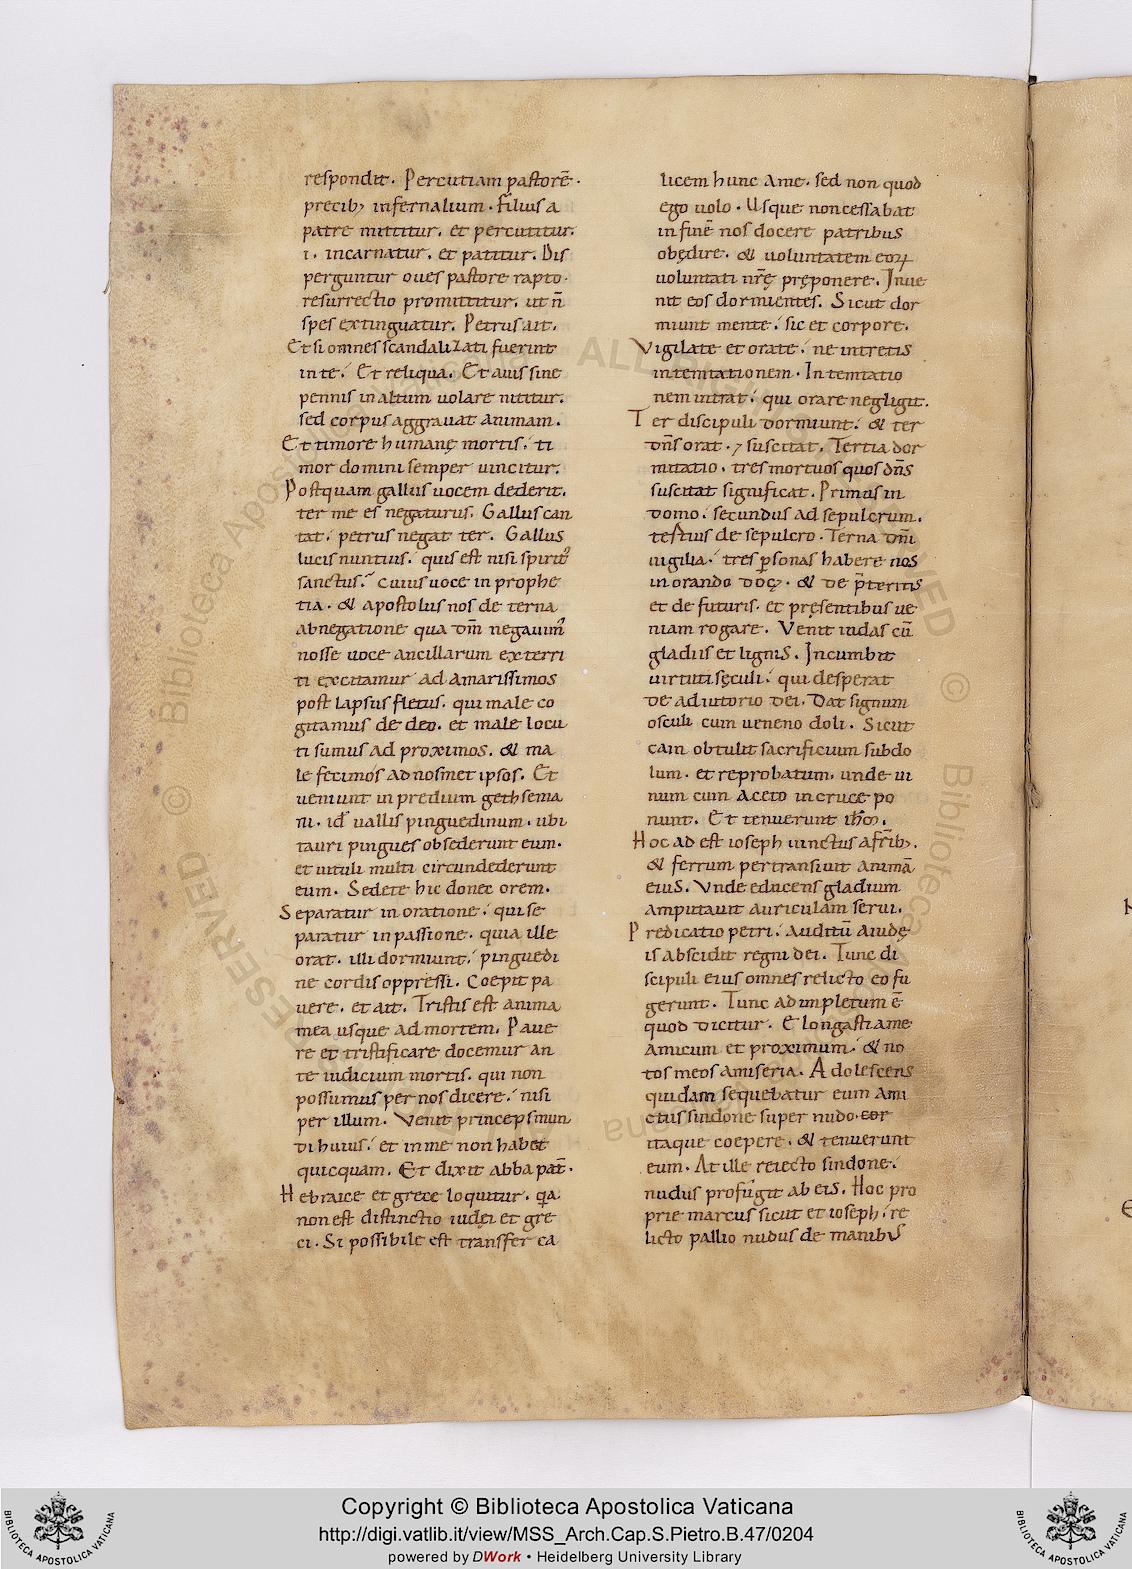 respondit. Percutiam pastorē.
precib; infernalium. Filius a
patre mittitur. et percutitur.
i. incarnatur. et patitur. Dis
perguntur oues pastore rapto.
resurrectio promittitur. ut ñ
spes extinguatur. Petrus ait.
Etsi omnes scandalizati fuerint
in te. Et reliqua. Et auis sine
pennis in altum uolare nititur.
sed corpus aggrauat animam.
Et timore humanę mortis. ti
mor domini semper uincitur.
Postquam gallus uocem dederit.
ter me es negaturus. Gallus can
tat. petrus negat ter. Gallus
lucis nuntius. quis est nisi spirit᾽
sanctus. cuius uoce in prophe
tia. & apostolus nos de terna
abnegatione qua dm̄ negauim᾽
nosse uoce ancillarum exterri
ti excitamur ad amarissimos
post lapsus fletus. qui male co
gitamus de deo. et male locu
ti sumus ad proximos. & ma
le fecimos ad nosmet ipsos. Et
ueniunt in predium gethsema
ni. id᾽ uallis pinguedinum. ubi
tauri pingues obsederunt eum.
et uituli multi circundederunt
eum. Sedete hic donec orem.
Separatur in oratione. qui se
paratur in passione. quia ille
orat. illi dormiunt. pinguedi
ne cordis oppressi. Coepit pa
uere. et ait. Tristis est anima
mea usque ad mortem. Paue
re et tristificare docemur an
te iudicium mortis. qui non
possumus per nos dicere. nisi
per illum. Venit princeps mun
di huius. et in me non habet
quicquam. Et dixit abba pat̄.
Hebraice et grece loquitur. q̄a
non est distinctio iudęi et gre
ci. Si possibile est transfer ca
licem hunc a me. sed non quod
ego uolo. Usque non cessabat
in finē nos docere patribus
obędire. & uoluntatem eoꝝ
uoluntati nr̄ę pręponere. Inue
nit eos dormientes. Sicut dor
miunt mente. sic et corpore.
Vigilate et orate. ne intretis
in temtationem. In temtatio
nem intrat. qui orare negligit.
Ter discipuli dormiunt. & ter
dn̄s orat. ⁊ suscitat. Tertia dor
mitatio. tres mortuos quos dn̄s
suscitat significat. Primus in
domo. secundus ad sepulcrum.
tertius de sepulcro. Terna dn̄i
uigilia. tres p̱sonas habere nos
in orando doc;. & de p̄teritis
et de futuris. et pręsentibus ue
niam rogare. Venit iudas cū
gladiis et lignis. Incumbit
uirtuti sęculi. qui desperat
de adiutorio dei. Dat signum
osculi cum ueneno doli. Sicut
cain obtulit sacrificium subdo
lum. et reprobatum. unde ui
num cum aceto in cruce po
nunt. Et tenuerunt ih̄m.
Hoc ad est ioseph uinctus a fr̄ib;.
& ferrum pertransiuit animā
eius. Vnde educens gladium
amputauit auriculam serui.
Predicatio petri. auditū a iudę
is abscidit regni dei. Tunc di
scipuli eius omnes relicto eo fu
gerunt. Tunc adimpletum ē
quod dicitur. Elongasti a me
amicum et proximum. & no
tos meos a miseria. Adolescens
quidam sequebatur eum ami
ctus sindone super nudo. eor
itaque coepere. & tenuerunt
eum. At ille reiecto sindone.
nudus profugit ab eis. Hoc pro
prie marcus sicut et ioseph. re
licto pallio nudus de manibus
Copyright © Biblioteca Apostolica Vaticana
http://digi.vatlib.it/view/MSS_Arch.Cap.S.Pietro.B.47/0204
powered by DWork • Heidelberg University Library